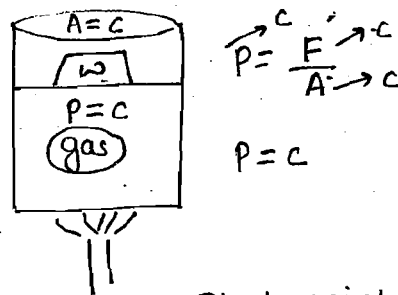 A = C
W
P = C
gas
P = F / A
C
C
C
P = C